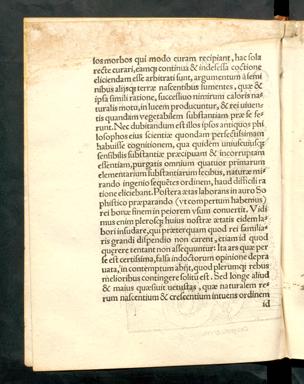 los morbos qui modo curam recipiant, hac sola
recte curari, eamq; continua & indefessa coctione
eliciendam esse arbitrati sunt, argumentum à semi
nibus alijsq; terræ nascentibus sumentes, quæ &
ipsa simili ratione, successiuo nimirum caloris na-
turalis motu, in lucem producuntur, & rei uiuen-
tis quandam vegetabilem substantiam præ se fe-
runt. Nec dubitandum est illos ipsos antiquos phi
losophos eius scientiæ quondam perfectissimam
habuisse cognitionem, qua quidem uniuscuiusq;
sensibilis substantiæ præcipuam & incorruptam
essentiam, purgatis omnium quatuor primarum
elementarium substantiarum fecibus, naturæ mi-
rando ingenio sequẽtes ordinem, haud difficili ra
tione eliciebant. Postera ætas laborans in auro So
phistico præparando (vt compertum habemus)
rei bonæ finem in peiorem vsum conuertit. Vidi
mus enim plerosq; huius nostræ ætatis eidem la-
bori insudare, qui præterquam quod rei familia-
ris grandi dispendio non carent, etiam id quod
quęrere tentant non assequuntur: Ita ars quæ per
se est certissima, falsa indoctorum opinione depra
uata, in contemptum abrjt, quod plerumq; rebus
melioribus contingere solitũ est. Sed longe aliud
& maius quæsiuit uetustas, quæ naturalem re-
rum nascentium & crescentium intuens ordinem
id